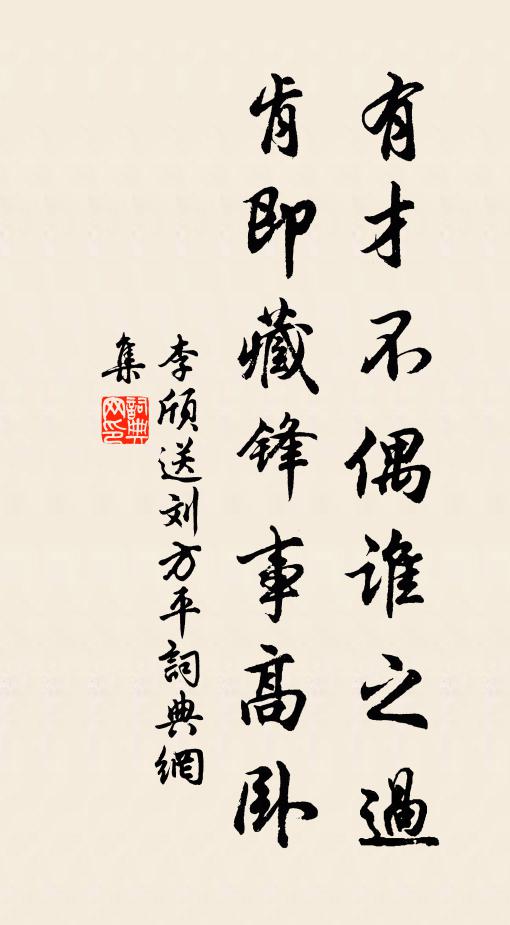 有才不偶谁之過
肯即藏锋事高卧
李頎送刘方平詞典網
集
詞典
网印